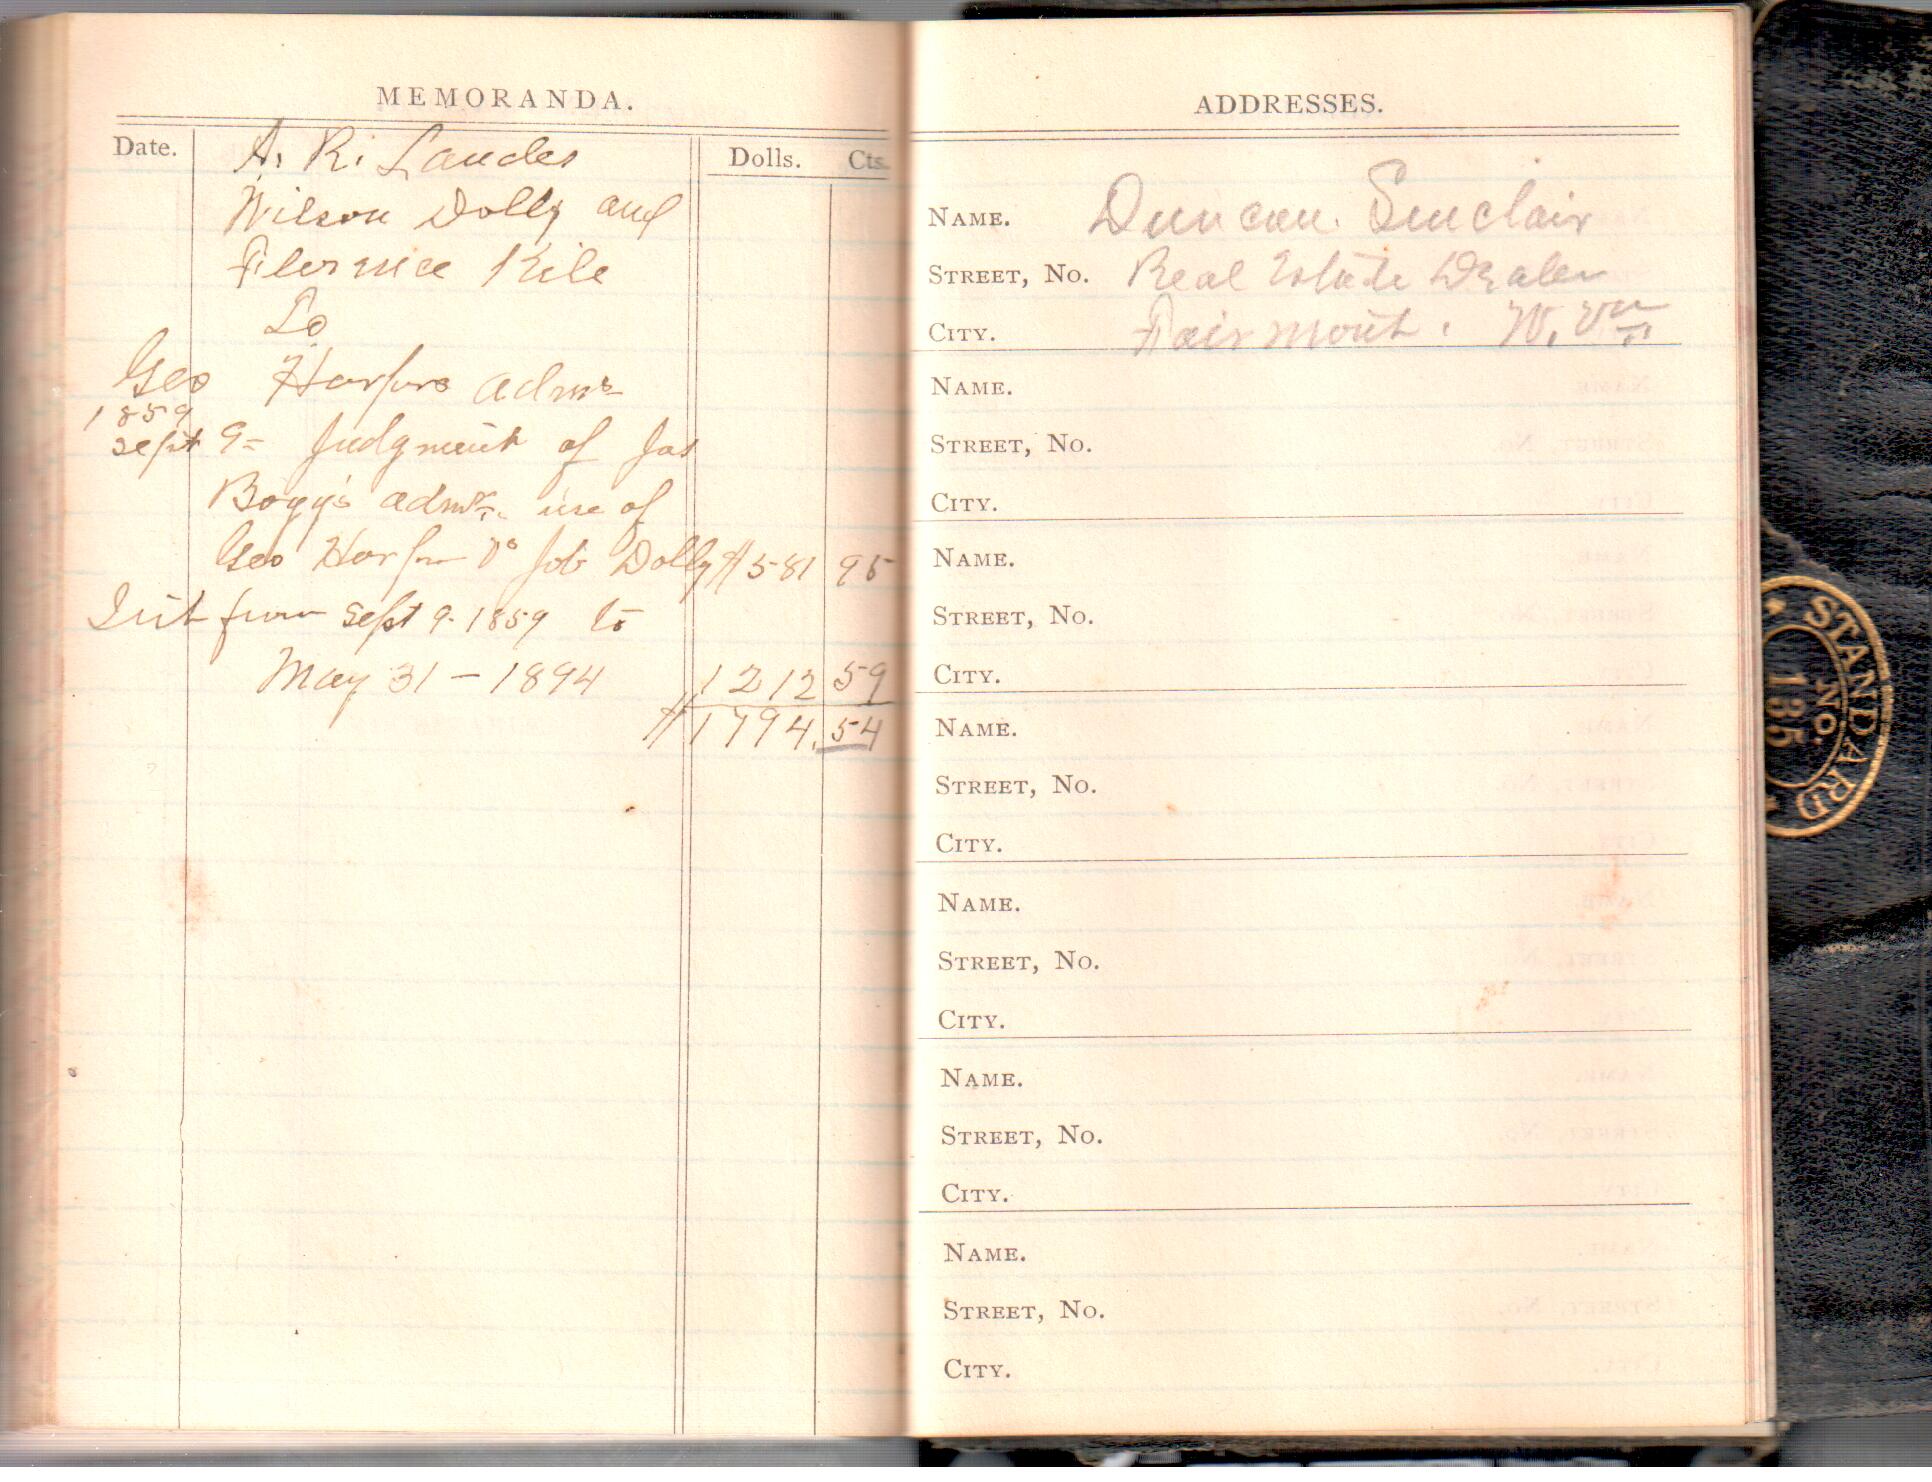 MEMORANDA.
Date. Dolls. Cts.
A. R. Landes
Wilson Dolly and
Florence Kile
To
Geo Harpers admr
1859
Sept 9= Judgment of Jas
Bogg's admr. use of
Geo Harper vs Job Dolly $581 95
Int from Sept 9. 1859 to
May 31 - 1894 1212 59
$1794. 54
ADDRESSES.
NAME. Duncan Sinclair
STREET, No. Real Estate Dealer
CITY. Fairmont. W. Va
NAME.
STREET, No.
CITY.
NAME.
STREET, No.
CITY.
NAME.
STREET, No.
CITY.
NAME.
STREET, No.
CITY.
NAME.
STREET, No.
CITY.
NAME.
STREET, No.
CITY.
STANDARD
No.
185